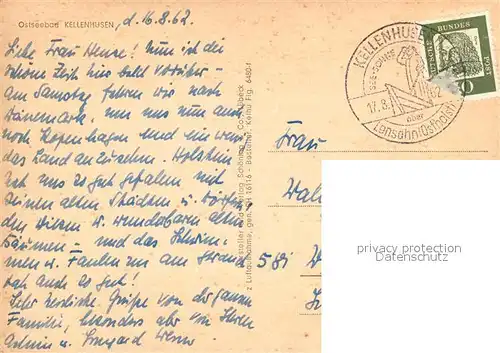 Ostseebad KELLENHUSEN, d. 16.8.62.
Liebe Frau Hense! Nun ist die
schöne Zeit hier bald vorüber -
am Samstag fahren wir nach
Dänemark, um uns nun auch
noch Kopenhagen und ein wenig
das Land anzusehen. Holstein
hat uns so gut gefallen mit
seinen alten Städten u. Dörfern,
den Wiesen u. wunderbaren alten
Bäumen - und das Schwim-
men u. Faulen am Strande
tat auch so gut!
Sehr herzliche Grüße von der ganzen
Familie, besonders aber von Ihren
u. Irmgard
Schöning & Co., Lübeck
z Luftaufnahme, gen. SH 16116 - Bestell-Nr. Kelhu Flg. 6480-f
KELLENHUSEN
17.8.62
über
Lensahn (Ostholst)
DEUTSCHE BUNDESPOST
10
Frau
581
privacy protection
Datenschutz